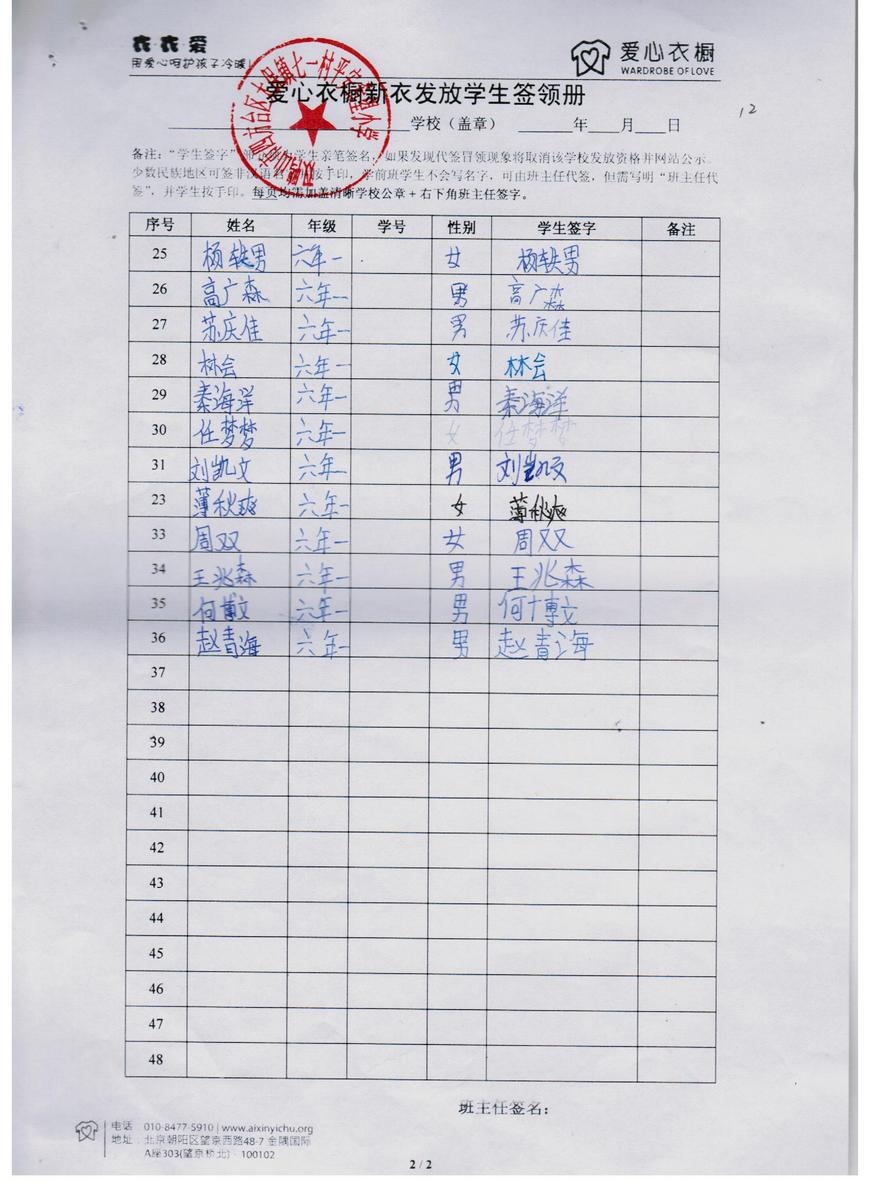 衣衣爱
用爱心呵护孩子冷暖!
爱心衣橱
WARDROBE OF LOVE
爱心衣橱新衣发放学生签领册
12
学校（盖章） 年 月 日
备注：“学生签字” 学生亲笔签名，如果发现代签冒领现象将取消该学校发放资格并网站公示。
少数民族地区可签非汉语名 按手印，学前班学生不会写名字，可由班主任代签，但需写明“班主任代
签”，并学生按手印。每页均需加盖清晰学校公章+右下角班主任签字。
序号 姓名 年级 学号 性别 学生签字 备注
25 杨轶男 六年一 女 杨轶男
26 高广森 六年一 男 高广森
27 苏庆佳 六年一 男 苏庆佳
28 林会 六年一 女 林会
29 秦海洋 六年一 男 秦海洋
30 任梦梦 六年一 女 任梦梦
31 刘凯文 六年一 男 刘凯文
23 薄秋爽 六年一 女 薄秋爽
33 周双 六年一 女 周双
34 王兆森 六年一 男 王兆森
35 何博文 六年一 男 何博文
36 赵青海 六年一 男 赵青海
37
38
39
40
41
42
43
44
45
46
47
48
班主任签名：
电话 010-8477-5910 | www.aixinyichu.org
地址： 北京朝阳区望京西路48-7 金隅国际
A座303(望京桥北)· 100102
2 / 2